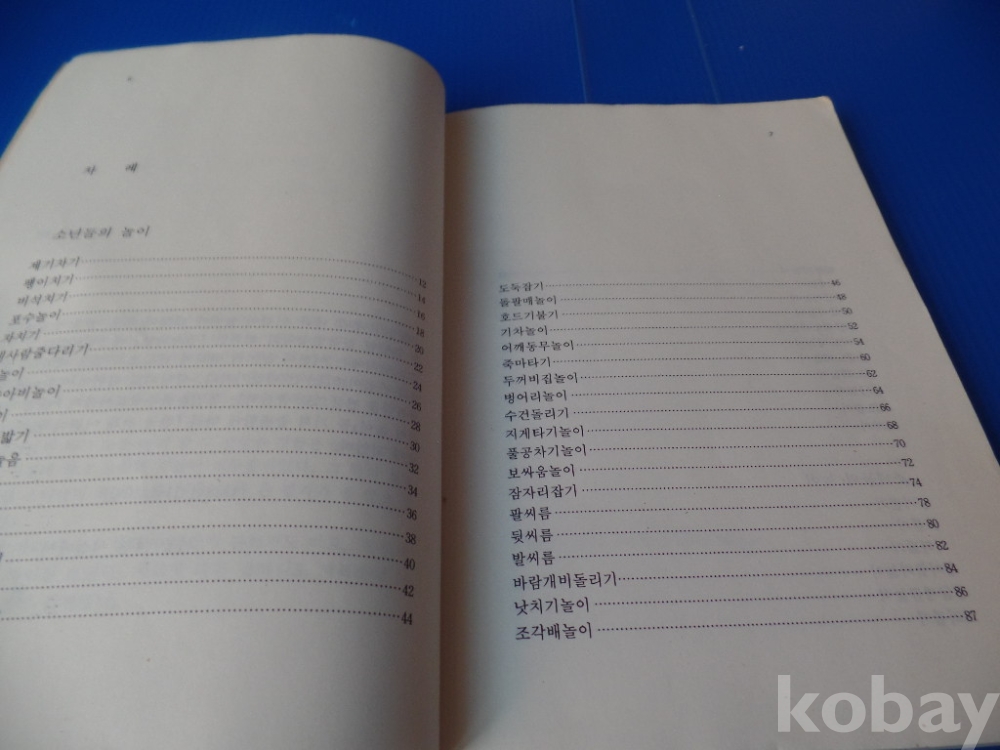 차 례
소년들의 놀이
제기차기 12
팽이치기 14
비석치기 16
포수놀이 18
자치기 20
사람줄다리기 22
놀이 24
아비놀이 26
28
밟기 30
32
34
36
38
40
42
44
7
도둑잡기 46
돌팔매놀이 48
호드기불기 50
기차놀이 52
어깨동무놀이 54
죽마타기 60
두꺼비집놀이 62
벙어리놀이 64
수건돌리기 66
지게타기놀이 68
풀공차기놀이 70
보싸움놀이 72
잠자리잡기 74
팔씨름 78
뒷씨름 80
발씨름 82
바람개비돌리기 84
낫치기놀이 86
조각배놀이 87
kobay